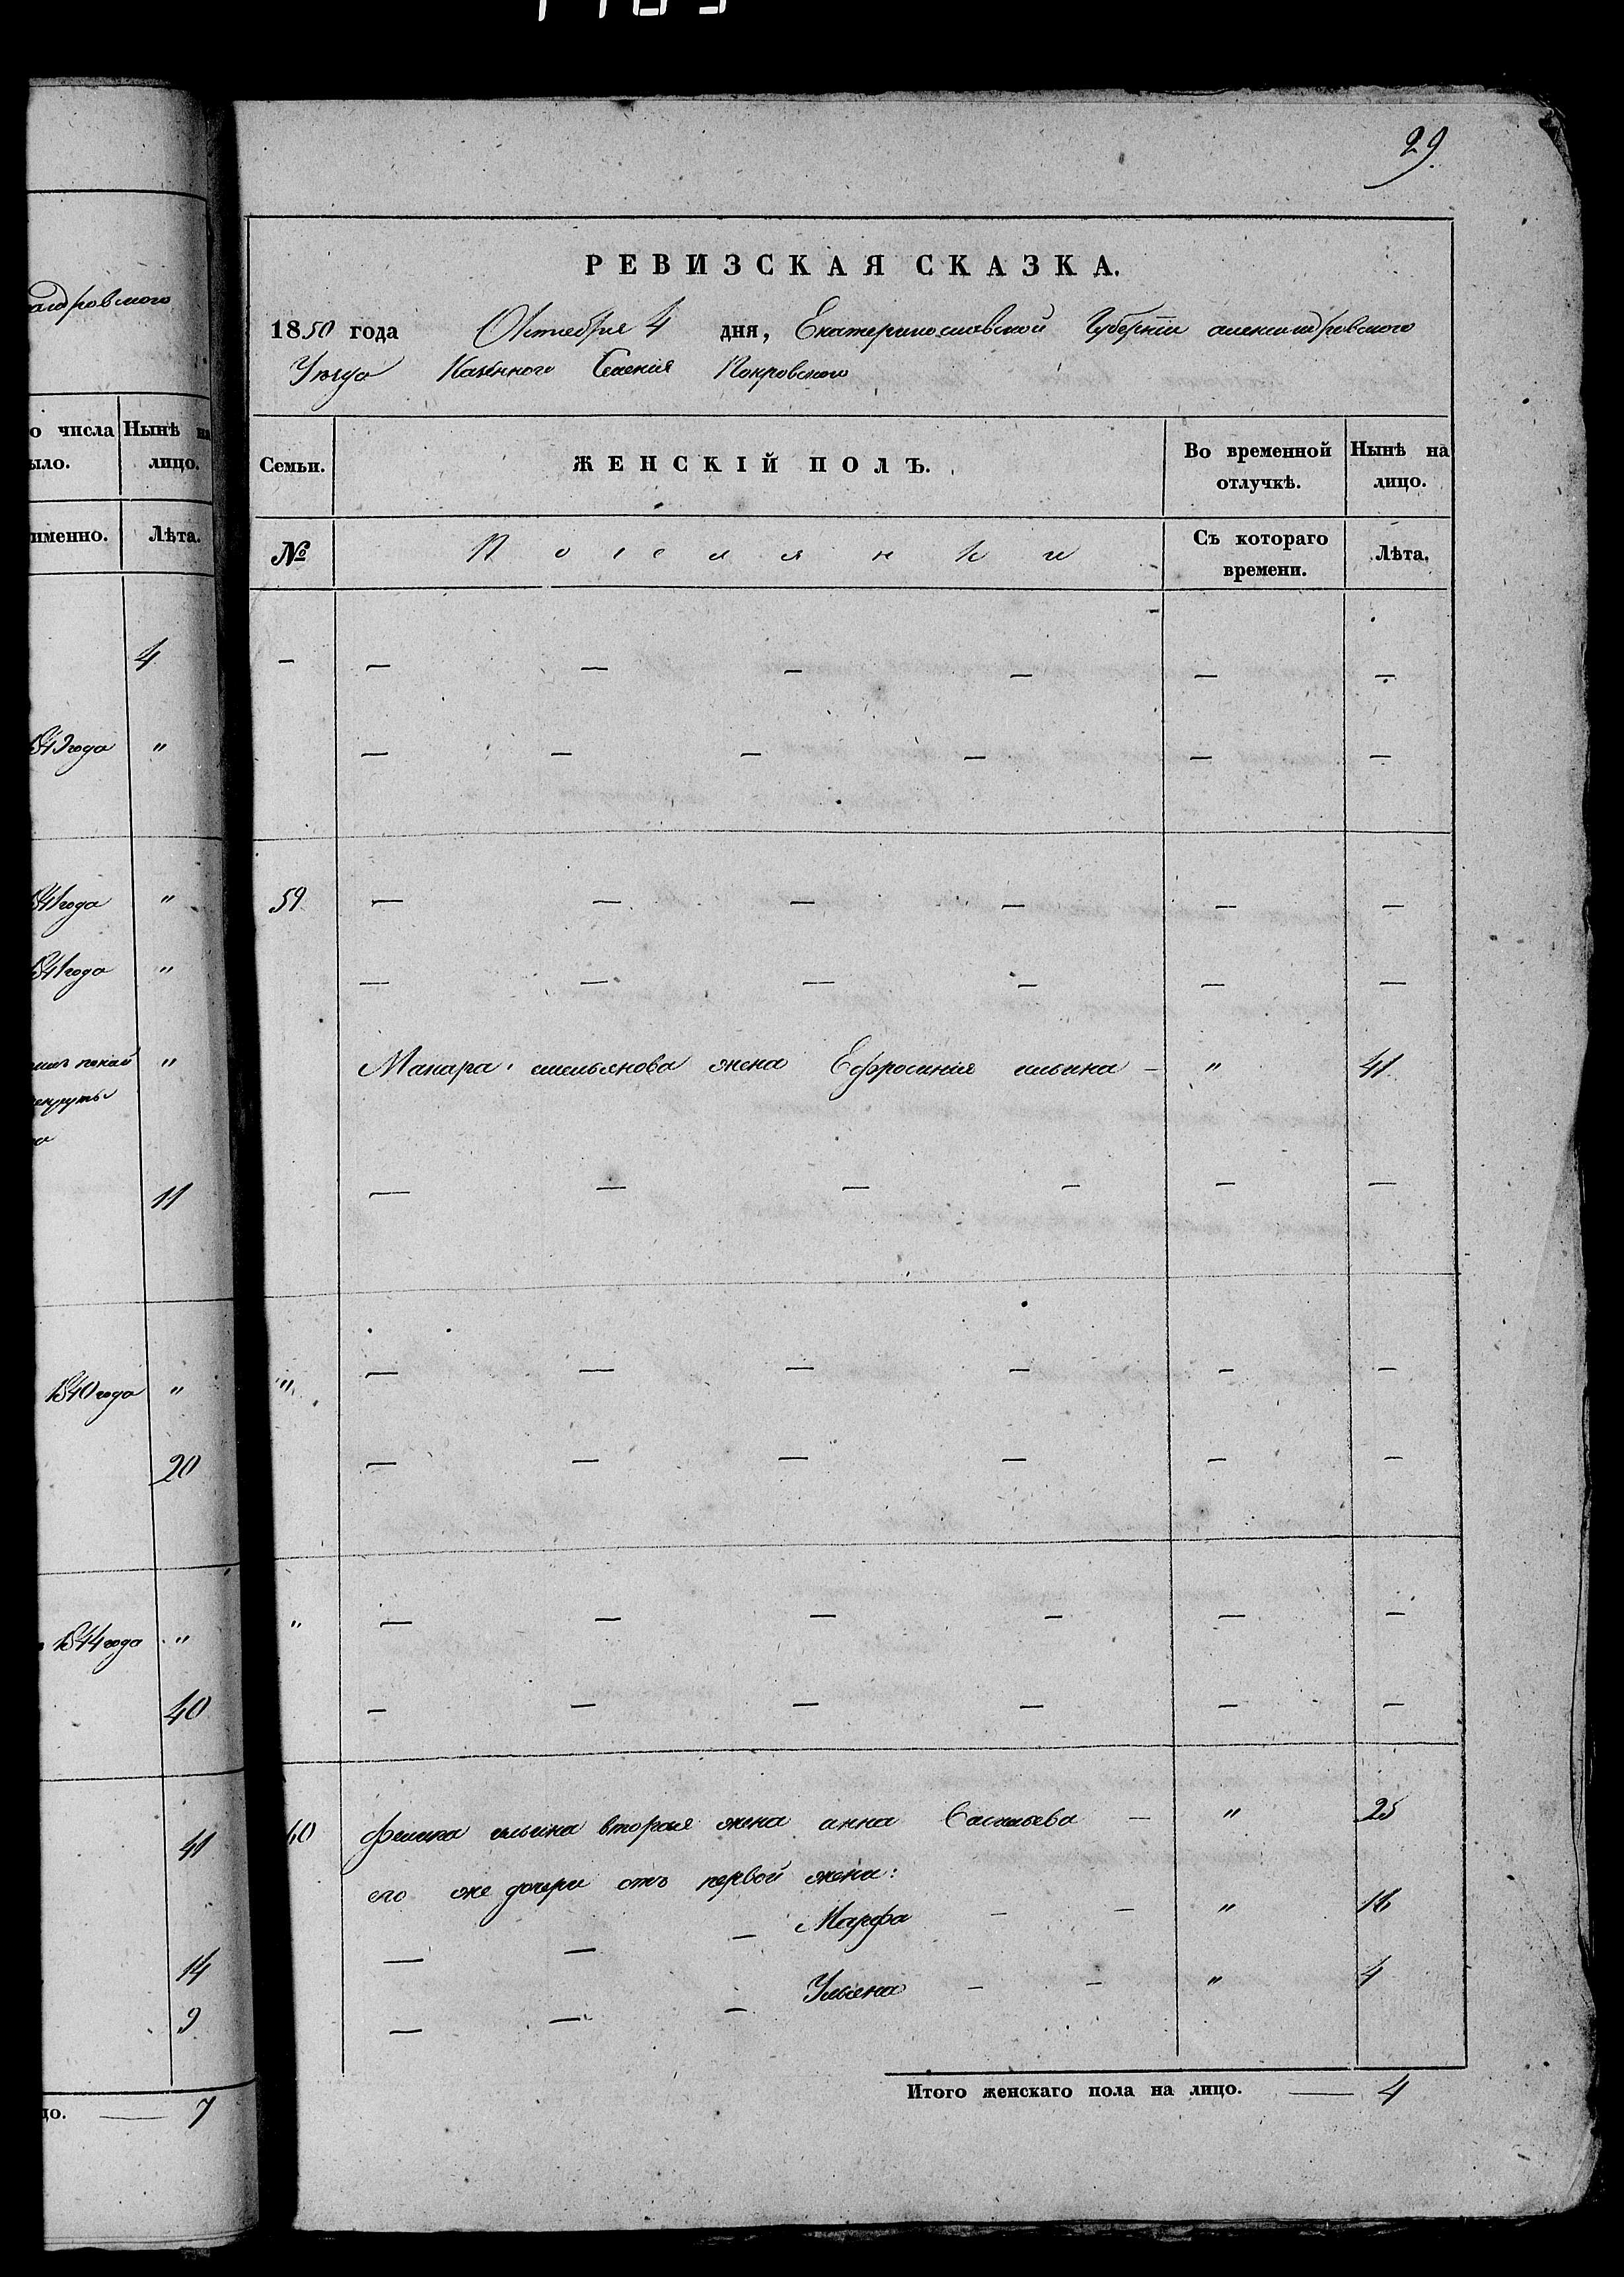 29.
РЕВИЗСКАЯ СКАЗКА.
1850 года Октября 4 дня, Екатеринославской Губерніи александровского
Уезда Казенного Селенія Покровского
Семьи. ЖЕНСКІЙ ПОЛЪ. Во временной отлучкѣ. Нынѣ на лицо.
№ Поселянки Съ котораго времени. Лѣта.
— — — — — — —
— — — — — —
59 — — — — — —
— — — — — —
Макара емельянова жена Ефросинія ильина — " 41
— — — — — —
" — — — — — —
— — — — — —
" — — — — — —
— — — — — —
60 ильина вторая жена анна Васильева — " 25
его же дочери отъ первой жены:
— — — Марфа — — " 16
— — — Ульяна — — " 4
Итого женскаго пола на лицо. — 4
андровского
о числа Нынѣ на
ыло. лицо.
именно. Лѣта.
4
года "
841 года "
841 года "
"
11
1840 года "
20
1844 года "
40
41
14
9
цо. — 7